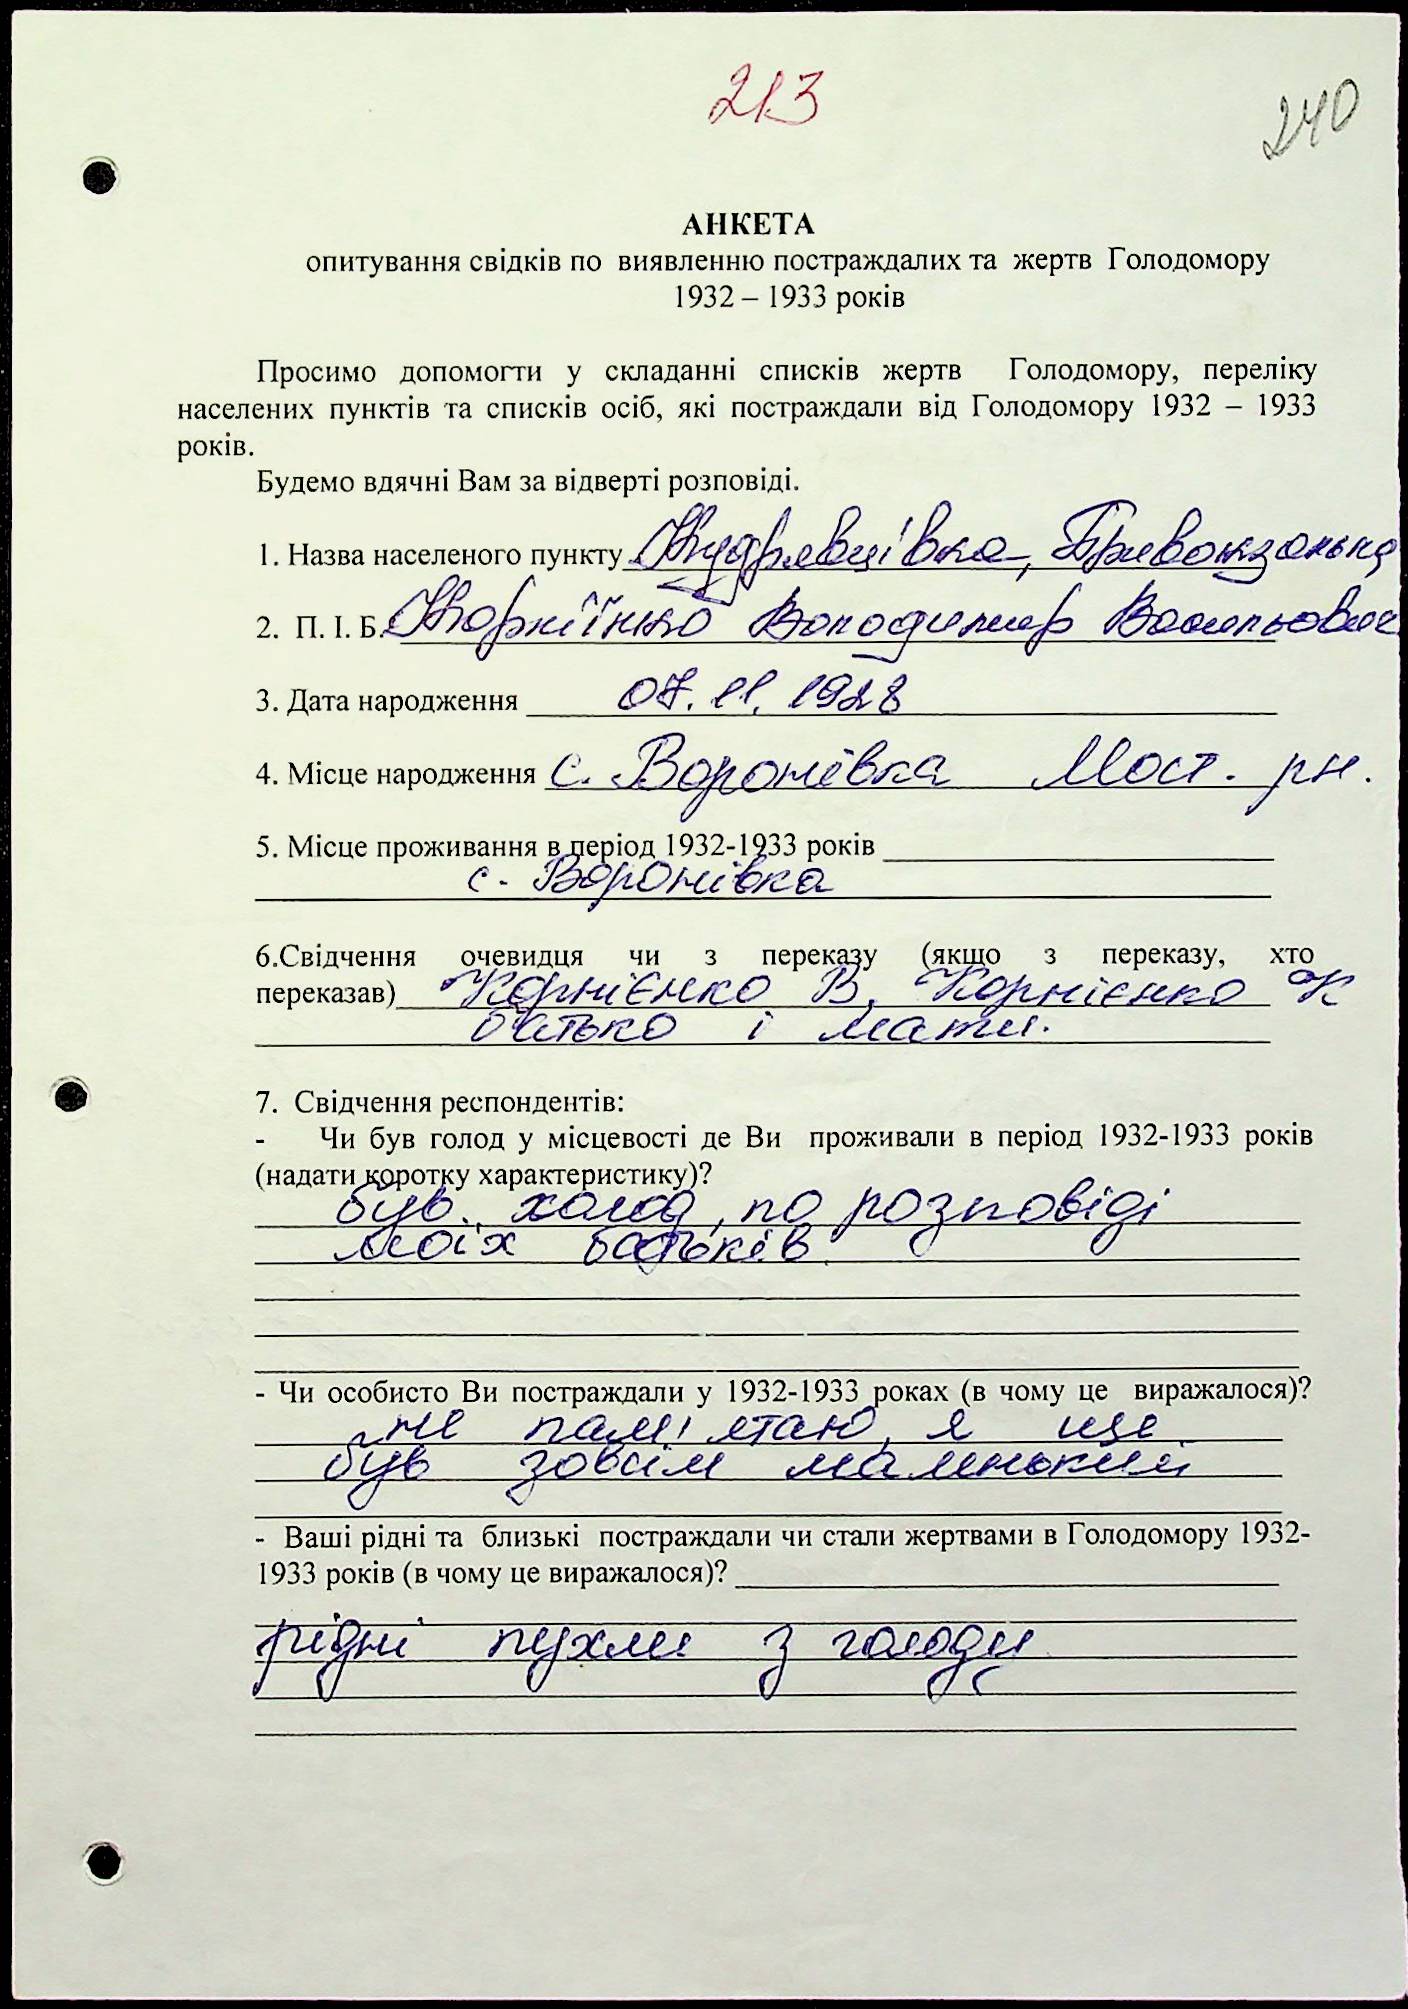 213
240
АНКЕТА
опитування свідків по виявленню постраждалих та жертв Голодомору
1932 – 1933 років
Просимо допомогти у складанні списків жертв Голодомору, переліку
населених пунктів та списків осіб, які постраждали від Голодомору 1932 – 1933
років.
Будемо вдячні Вам за відверті розповіді.
1. Назва населеного пункту Кудрявцівка, Привокзальна
2. П. І. Б. Володимир Васильович
3. Дата народження 07.11.1928
4. Місце народження с. Воронівка Мост. рн.
5. Місце проживання в період 1932-1933 років
с. Воронівка
6.Свідчення очевидця чи з переказу (якщо з переказу, хто
переказав) Корнієнко В, Корнієнко К
батько і мати.
7. Свідчення респондентів:
- Чи був голод у місцевості де Ви проживали в період 1932-1933 років
(надати коротку характеристику)?
був. холод, по розповіді
моїх батьків.
- Чи особисто Ви постраждали у 1932-1933 роках (в чому це виражалося)?
не пам'ятаю, я ще
був зовсім маленький
- Ваші рідні та близькі постраждали чи стали жертвами в Голодомору 1932-
1933 років (в чому це виражалося)?
рідні пухли з голоду